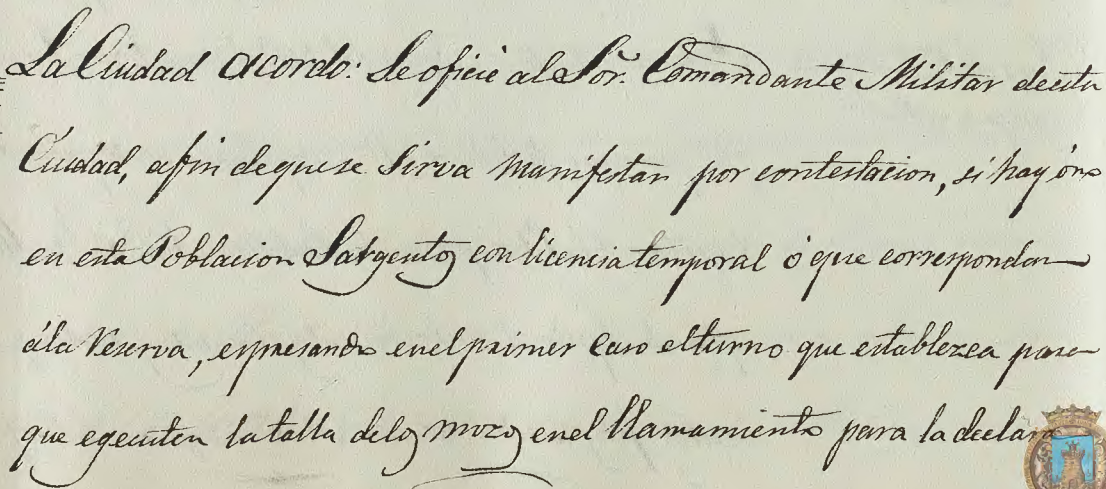 La Ciudad acordo: Se oficie al Sõr. Comandante Militar de esta
Ciudad, afin de que se sirva manifestar por contestacion, si hay ó no
en esta Poblacion Sargentos con licencia temporal ó que correspondan
ála Reserva, espresando en el primer caso el turno que establezca para
que egecuten la talla de los mozos en el llamamiento para la declara